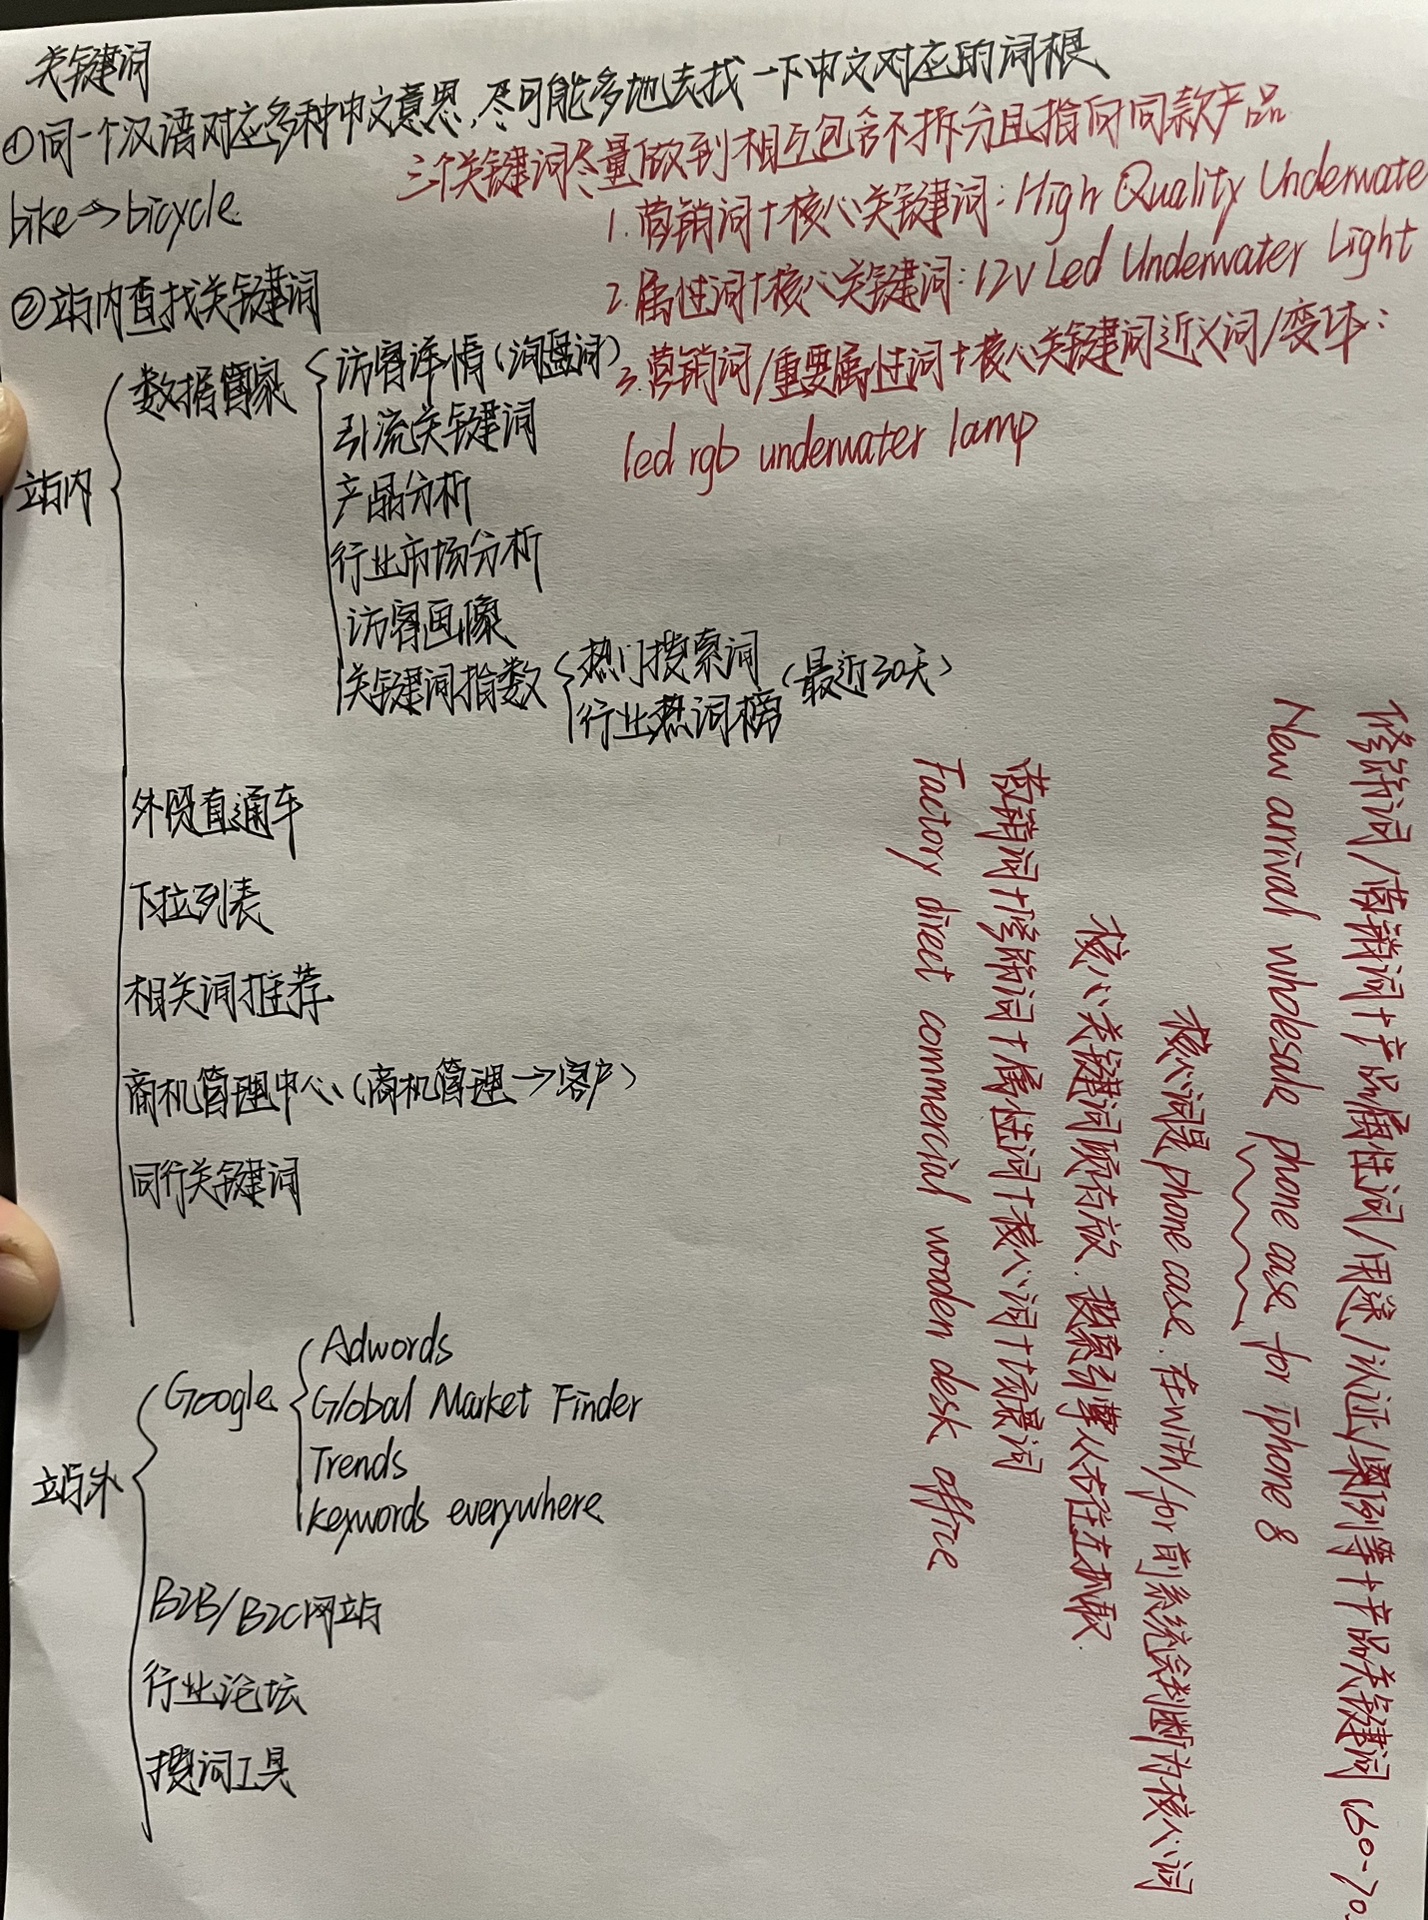 关键词
①同一个汉语对应多种中文意思,尽可能多地去找一下中文对应的词根
bike→bicycle
三个关键词尽量做到相互包含不拆分且指向同款产品
1.营销词+核心关键词:High Quality Underwate
2.属性词+核心关键词:12V Led Underwater Light
3.营销词/重要属性词+核心关键词近义词/变体:
led rgb underwater lamp
②站内查找关键词
站内
数据管家
访客详情(询盘词)
引流关键词
产品分析
行业市场分析
访客画像
关键词指数
热门搜索词
行业热词榜
(最近30天)
外贸直通车
下拉列表
相关词推荐
商机管理中心(商机管理→客户)
同行关键词
站外
Google
Adwords
Global Market Finder
Trends
keywords everywhere
B2B/B2C网站
行业论坛
搜词工具
修饰词/营销词+产品属性词/用途/认证/案例等+产品关键词(60-70
New arrival wholesale phone case for iphone 8
核心词是phone case.在with/for前系统会判断为核心词
核心关键词顺着放.搜索引擎从右往左抓取.
营销词+修饰词+属性词+核心词+场景词
Factory direct commercial wooden desk office